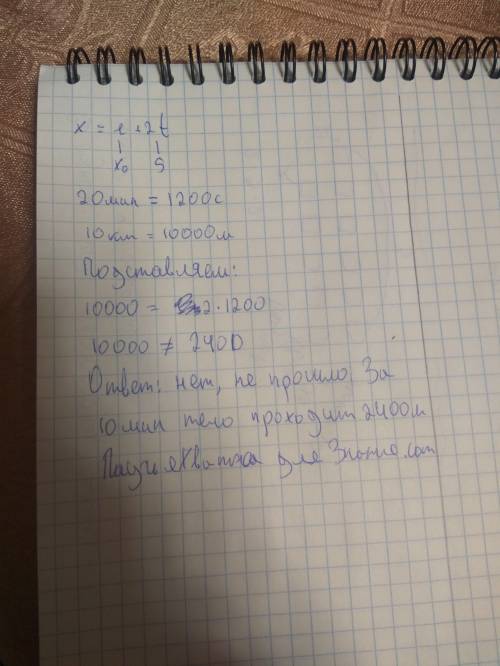 x = 1 + 2t
x₀ S
20 мин = 1200с
10 км = 10000м
Подставляем:
10000 = 2·1200
10000 ≠ 2400
Ответ: нет, не прошло. За
10 мин тело проходит 2400м
для Знание.com